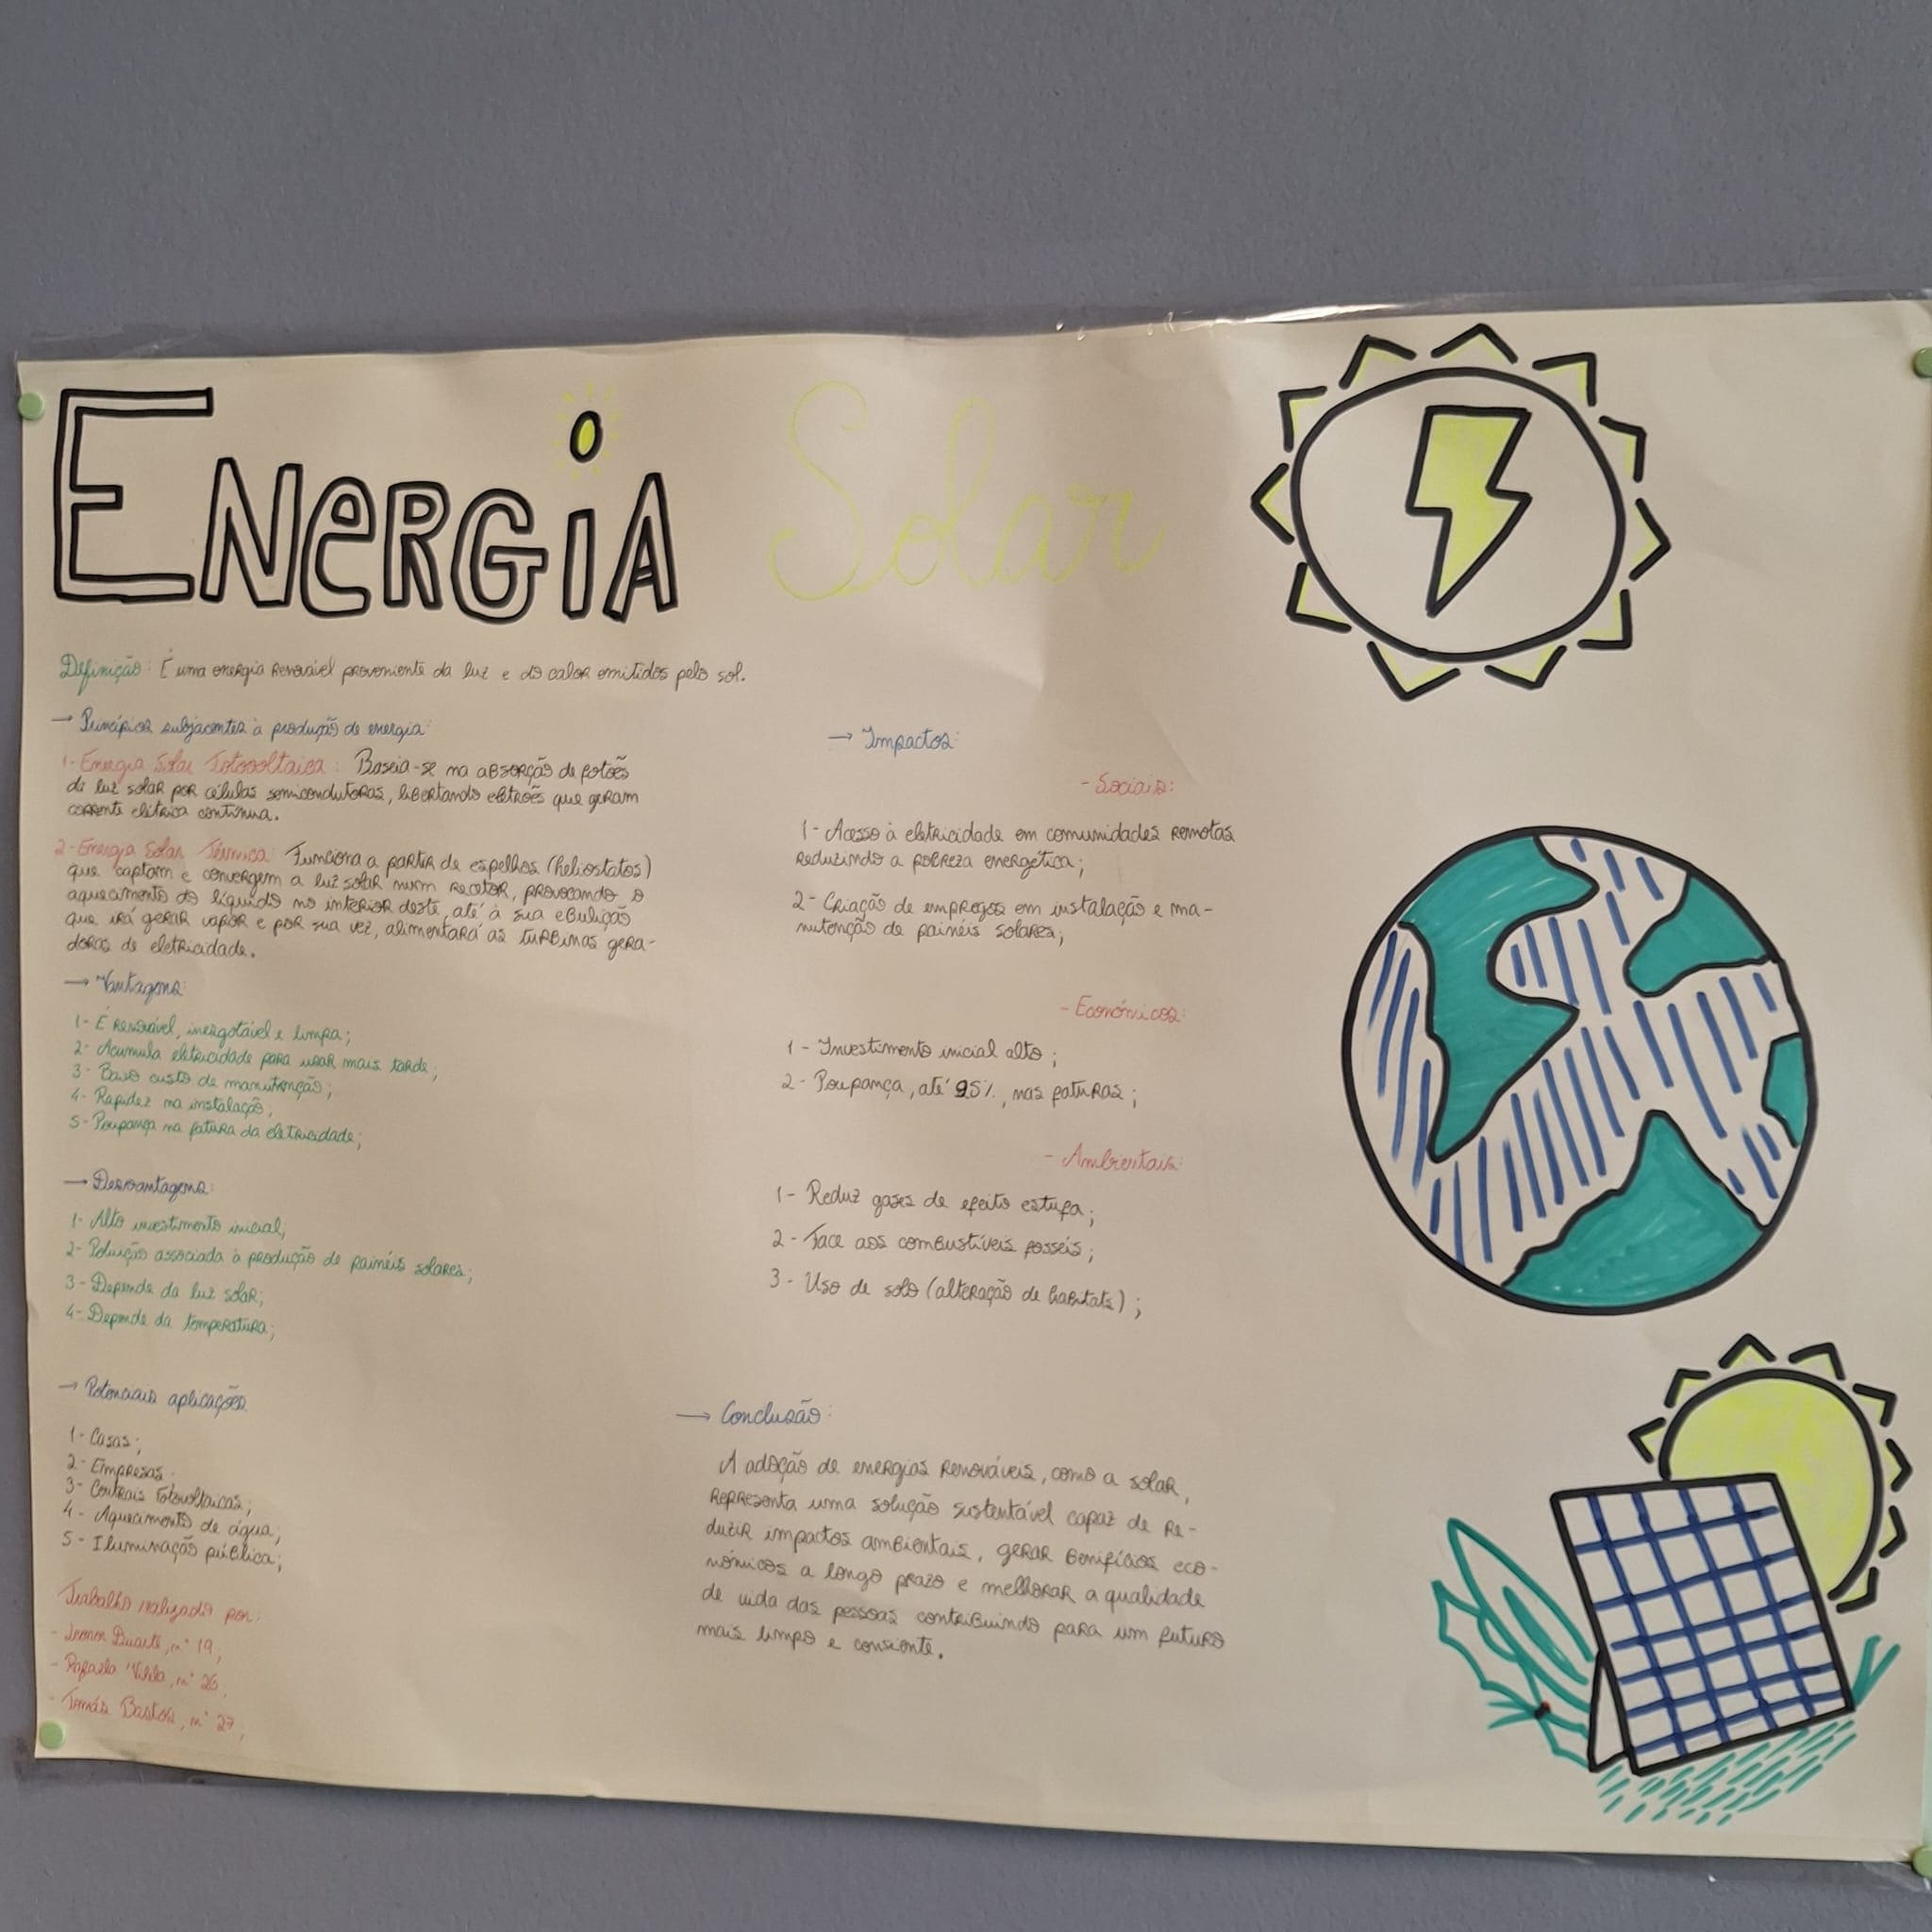 ENERGIA Solar
Definição: É uma energia renovável proveniente da luz e do calor emitidos pelo sol.
→ Princípios subjacentes à produção de energia:
1- Energia Solar Fotovoltaica: Baseia-se na absorção de fotões
da luz solar por células semicondutoras, libertando eletrões que geram
corrente elétrica contínua.
2- Energia Solar Térmica: Funciona a partir de espelhos (heliostatos)
que captam e convergem a luz solar num recetor, provocando o
aquecimento do líquido no interior deste, até à sua ebulição
que irá gerar vapor e por sua vez, alimentará as turbinas gera-
doras de eletricidade.
→ Vantagens:
1- É renovável, inesgotável e limpa;
2- Acumula eletricidade para usar mais tarde;
3- Baixo custo de manutenção;
4- Rapidez na instalação;
5- Poupança na fatura da eletricidade;
→ Desvantagens:
1- Alto investimento inicial;
2- Poluição associada à produção de painéis solares;
3- Depende da luz solar;
4- Depende da temperatura;
→ Potenciais aplicações
1- Casas;
2- Empresas
3- Centrais Fotovoltaicas;
4- Aquecimento de água;
5- Iluminação pública;
Trabalho realizado por:
- Leonor Duarte, nº 19;
- Rafaela nº 26;
- Tomás Bastos, nº 27;
→ Impactos:
- Sociais:
1- Acesso à eletricidade em comunidades remotas
reduzindo a pobreza energética;
2- Criação de empregos em instalação e ma-
nutenção de painéis solares;
- Económicos:
1- Investimento inicial alto;
2- Poupança, até 95%, nas faturas;
- Ambientais:
1- Reduz gases de efeito estufa;
2- Face aos combustíveis fosseis;
3- Uso de solo (alteração de habitats);
→ Conclusão:
A adoção de energias renováveis, como a solar,
representa uma solução sustentável capaz de re-
duzir impactos ambientais, gerar benifícios eco-
nómicos a longo prazo e melhorar a qualidade
de vida das pessoas contribuindo para um futuro
mais limpo e consiente.